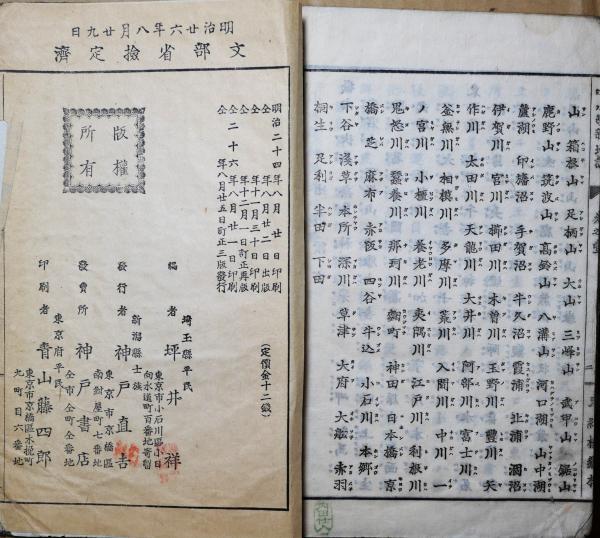 山 箱根山 足柄山 大山 三峰山 武甲山 鋸山
鹿野山 筑波山 高鈴山 八溝山 河口湖 山中湖
蘆湖 印旛沼 手賀沼 牛久沼 霞浦 北浦 涸沼
伊賀川 宮川 櫛田川 木曽川 玉野川 豊川 矢
作川 太田川 天龍川 大井川 阿部川 富士川
釜無川 相模川 多摩川 千葉川 入間川 中川 一
ノ宮川 小櫃川 養老川 夷隅川 江戸川 利根川
鬼怒川 蠶養川 那珂川 麹町 神田 日本橋 京
橋 芝 麻布 赤阪 四谷 牛込 小石川 本郷
下谷 浅草 本所 深川 草津 大府 大垣 赤羽
桐生 足利 半田 下田
明治廿六年八月廿九日
文部省檢定濟
版權
所有
明治二十四年八月廿日印刷
仝 年八月廿二日出版
仝 年十一月三十日印刷
仝 年十二月一日訂正再版
仝 二十六年八月廿一日印刷
仝 年八月廿五日訂正三版發行
(定價金十二錢)
埼玉縣平民
編者 坪井祥
東京市小石川區小日
向水道町百番地寄留
新潟縣士族
發行者 神戸直吉
東京市京橋區
南紺屋町七番地
發賣所 神戸書店
仝市仝町仝番地
東京府平民
印刷者 青山藤四郎
東京市京橋區木挽町
九町目六番地